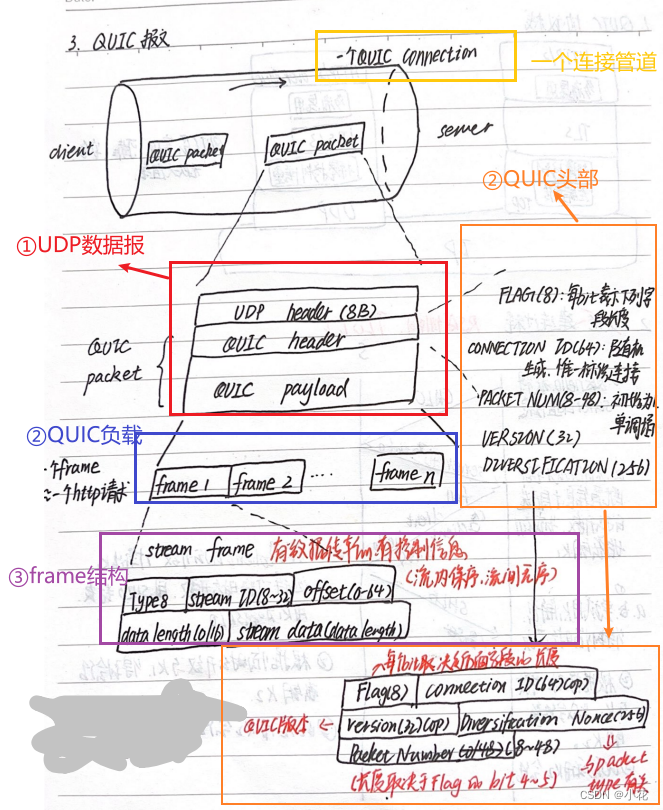 3. QUIC 报文
一个QUIC connection
一个连接管道
client
QUIC packet
QUIC packet
server
②QUIC头部
①UDP数据报
UDP header (8B)
QUIC header
QUIC payload
QUIC
packet
FLAG(8): 每bit表示下列字
段长度
CONNECTION ID(64):
生成, 唯一标识连接
PACKET NUM(8-48): 初始为1,
单调增
VERSION(32)
DIVERSIFICATION(256)
②QUIC负载
一个frame
一个http请求
frame 1
frame 2
....
frame n
③frame结构
stream frame
(流内保序, 流间无序)
Type8
stream ID(8~32)
offset(0-64)
data length(0/16)
stream data(data length)
每bit取决后面字段的长度
Flag(8)
connection ID(64)(op)
QUIC版本
version(32)(op)
Diversification Nonce(256)
Packet Number (8~48)
(长度取决于Flag的bit 4~5)
与packet
type有关
CSDN @小花